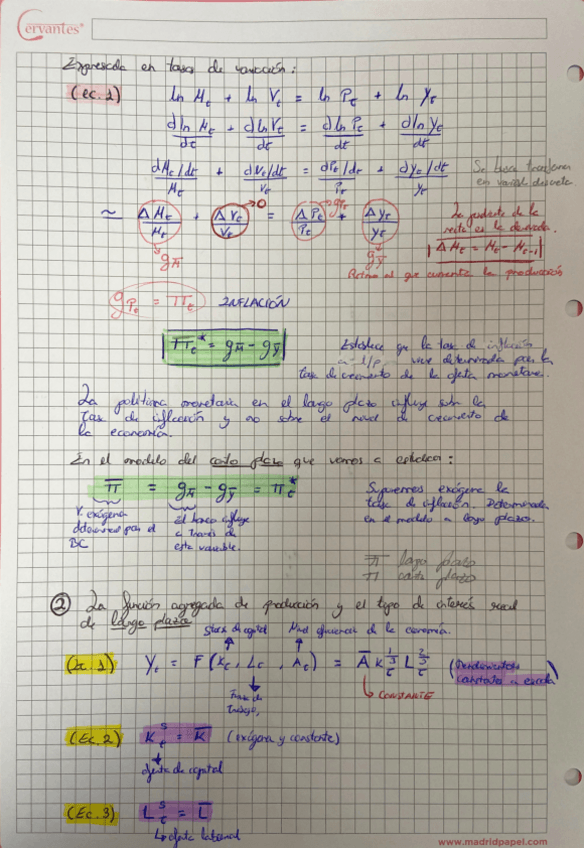 Cervantes®
Expresada en tasas de variación:
(ec. 1) ln Mt + ln Vt = ln Pt + ln Yt
dln Mt/dt + dln Vt/dt = dln Pt/dt + dln Yt/dt
(dMt/dt)/Mt + (dVt/dt)/Vt = (dPt/dt)/Pt + (dyt/dt)/yt
Se busca transformar
en variable discreta
~ ΔMt/Mt + ΔVt/Vt = ΔPt/Pt + Δyt/yt
→0
gPt
gM̄
gȳ
La pendiente de la
recta es la derivada.
| ΔMt = Mt - Mt-1 |
Ritmo al que aumenta la producción
gPt = πt INFLACIÓN
πt* = gM̄ - gȳ
Establece que la tasa de inflación
a l/p viene determinada por la
tasa de crecimiento de la oferta monetaria.
La política monetaria en el largo plazo influye sobre la
tasa de inflación y no sobre el nivel de crecimiento de
la economía.
En el modelo del corto plazo que vamos a estudiar:
π̄ = gM̄ - gȳ = πt*
Suponemos exógena la
tasa de inflación. Determinada
en el modelo a largo plazo.
V. exógena
determinada por el
BC
El banco influye
a través de
esta variable.
π̄ largo plazo
π corto plazo
② La función agregada de producción y el tipo de interés real
de largo plazo
Stock de capital
Nivel eficiencia de la economía.
(Ec. 1) Yt = F(Kt, Lt, At) = Ā Kt^1/3 Lt^2/3 (Rendimientos
constantes a escala)
Fuerza de
trabajo,
↳ CONSTANTE
(Ec. 2) Kt^s = K̄ (exógena y constante)
oferta de capital
(Ec. 3) Lt^s = L̄
↳ oferta laboral
www.madridpapel.com